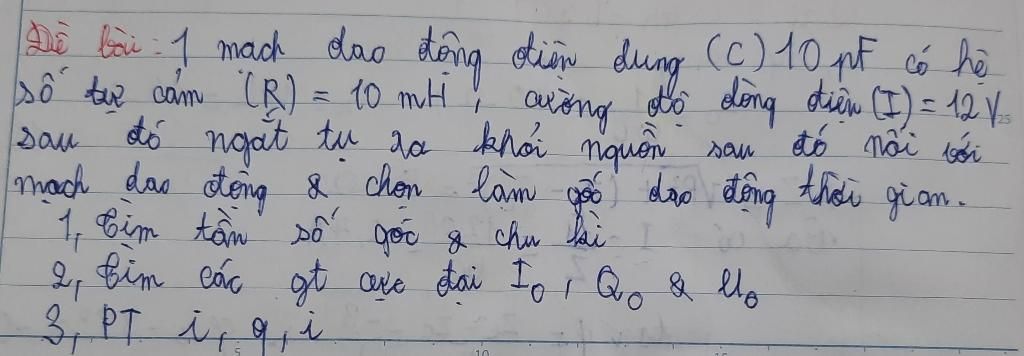 Đề bài: 1 mạch dao động điện dung (C) 10 pF có hệ
số tự cảm (R) = 10 mH, cường độ dòng điện (I) = 12 V,
sau đó ngắt tụ ra khỏi nguồn sau đó nối với
mạch dao động & chọn làm gốc dao động thời gian.
1, tìm tần số góc & chu kì
2, tìm các gt cực đại I₀, Q₀ & U₀
3, PT i, q, i